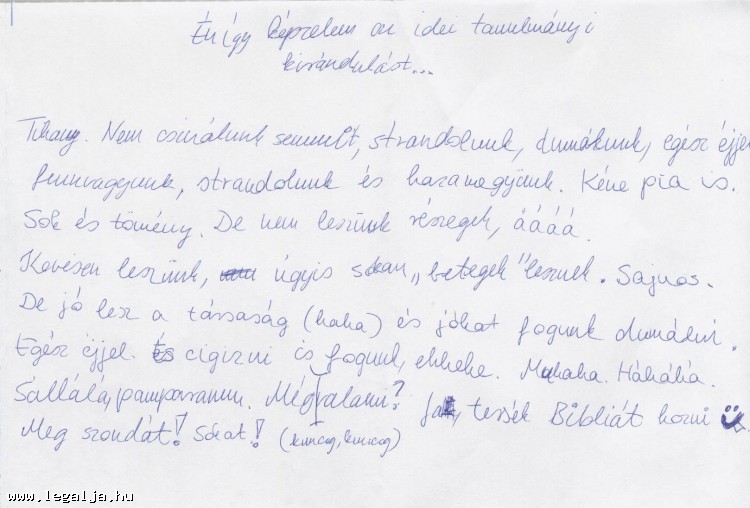 Én így képzelem az idei tanulmányi
kirándulást...
Tihany. Nem csinálunk semmit, strandolunk, dumálunk, egész éjjel
fennvagyunk, strandolunk és hazamegyünk. Kéne pia is.
Sok és tömény. De nem leszünk részegek, áááá.
Kevesen leszünk, úgyis sokan „betegek" lesznek. Sajnos.
De jó lesz a társaság (haha) és jókat fogunk dumálni.
Egész éjjel. És cigizni is fogunk, ehhehe. Muhaha. Háháháa.
Sallálá, pamparamm. Még valami? Ja, tessék Bibliát hozni
Meg szondát! Sókat! (kuncog, kuncog)
www.legalja.hu